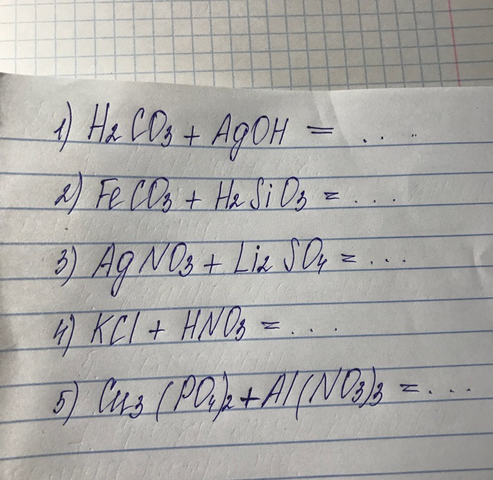 1) H₂CO₃ + AgOH = ....
2) FeCO₃ + H₂SiO₃ = ...
3) AgNO₃ + Li₂SO₄ = ...
4) KCl + HNO₃ = ...
5) Cu₃(PO₄)₂ + Al(NO₃)₃ = ...